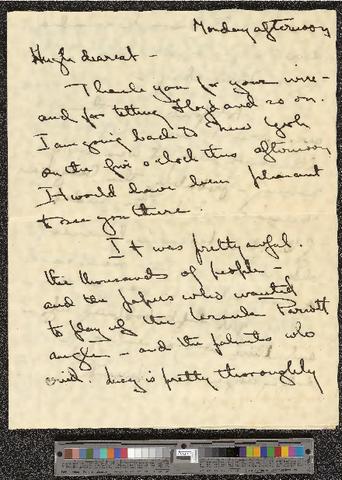 Monday afternoon
Hugh dearest -
Thank you for your wire -
and for telling Floyd and so on.
I am going back to New York
on the five o clock this afternoon
It would have been pleasant
to see you there.
It was pretty awful.
the thousands of people -
and the papers who wanted
to play up the Ursula Parrott
angle - and the patients who
cried. Lucy is pretty thoroughly